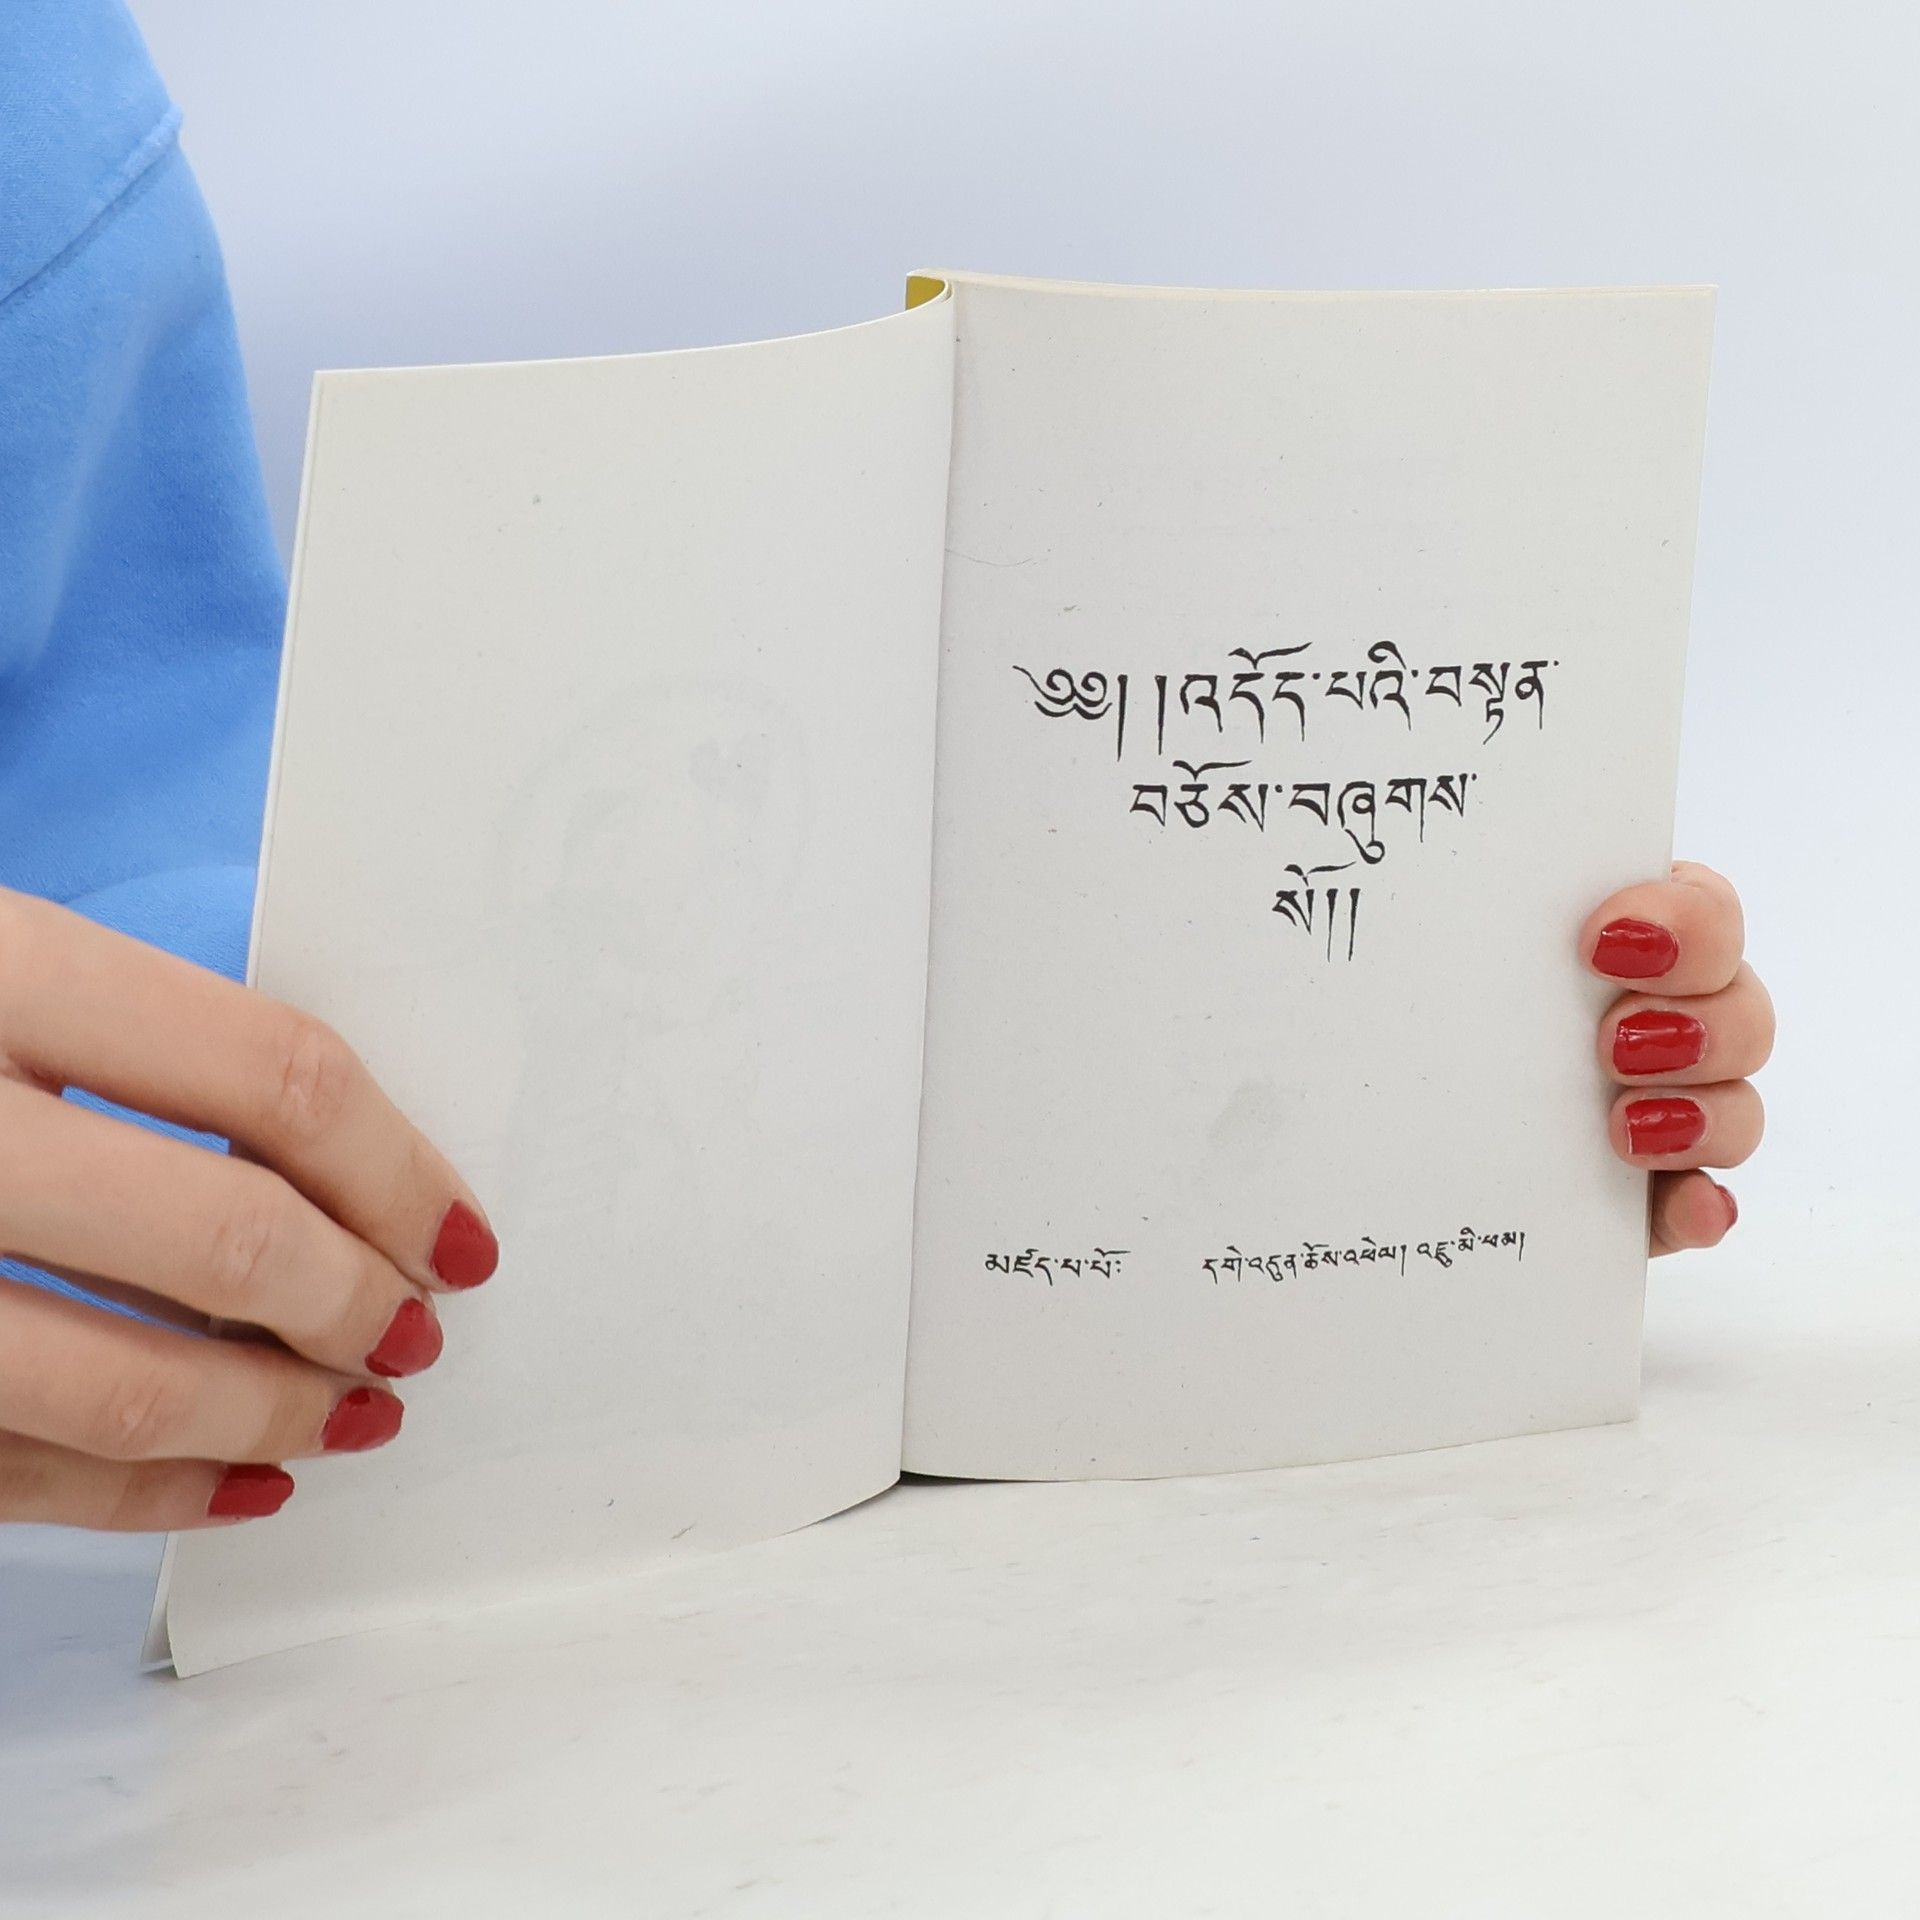 ༄༅། །འདོད་པའི་བསྟན་
བཅོས་བཞུགས་
སོ།།
མཛད་པ་པོ་: དགེ་འདུན་ཆོས་འཕེལ། འཇུ་མི་ཕམ།